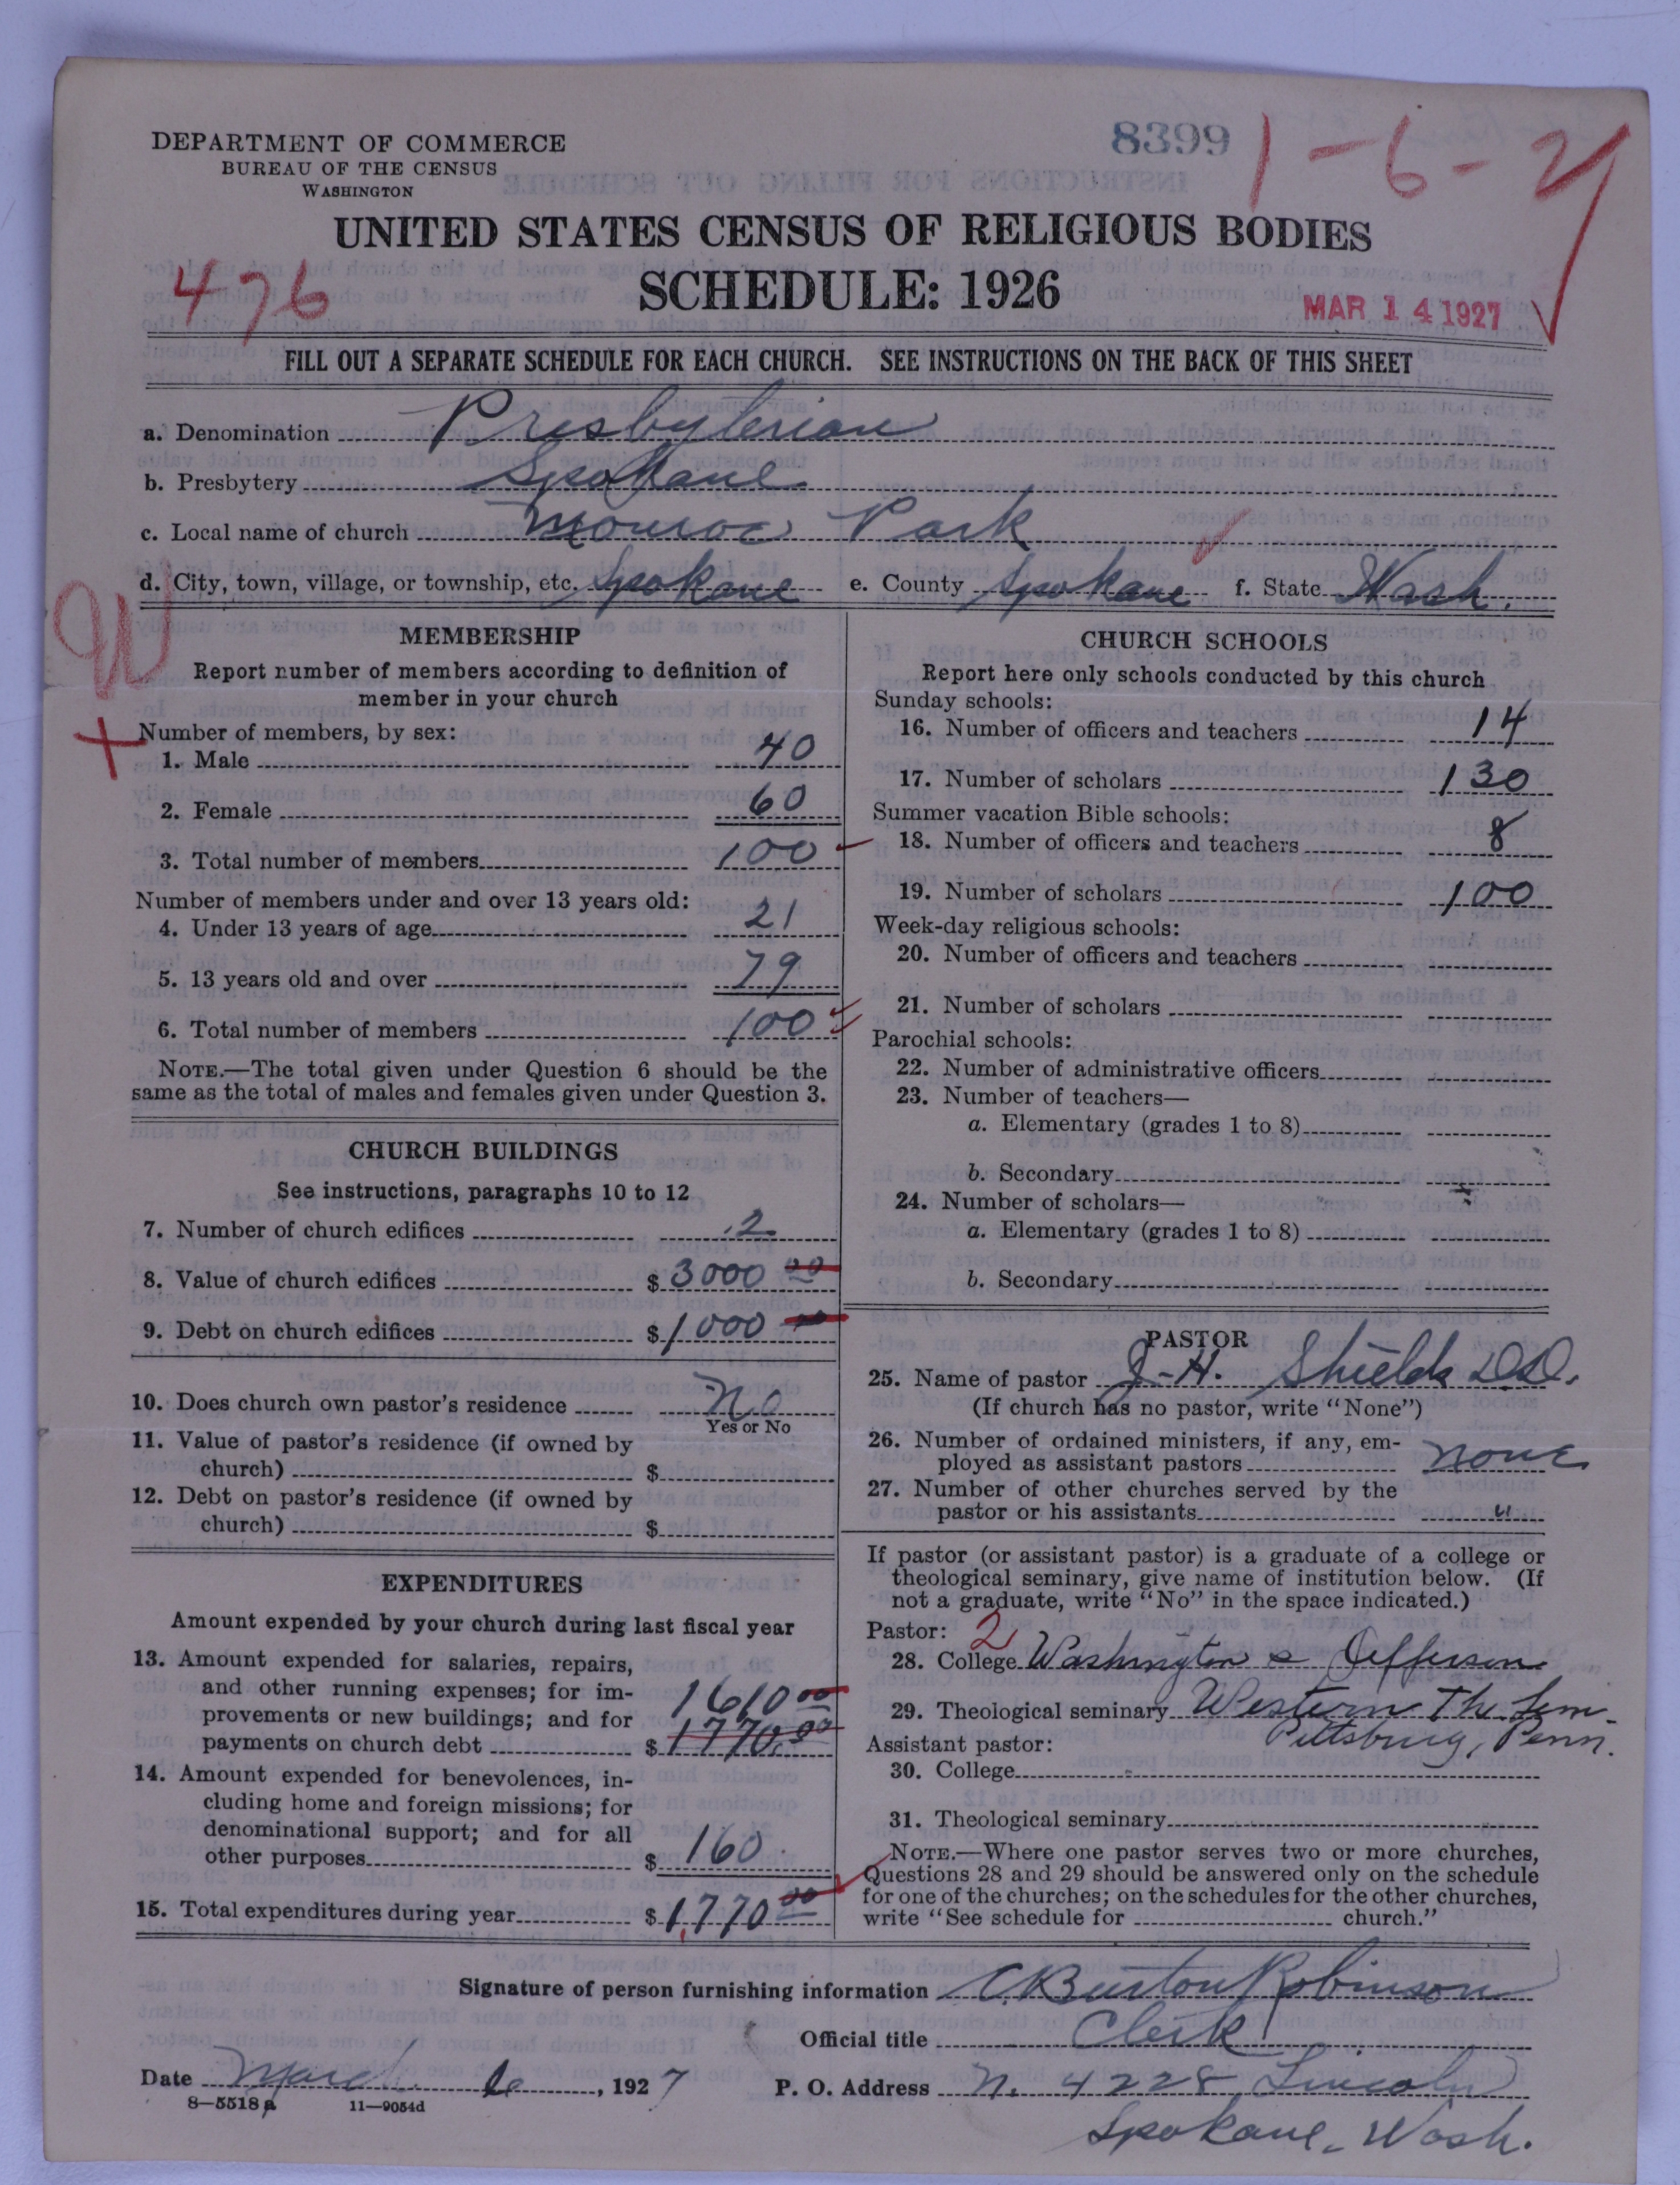 DEPARTMENT OF COMMERCE
BUREAU OF THE CENSUS
WASHINGTON
8399
1-6-2
UNITED STATES CENSUS OF RELIGIOUS BODIES
476
SCHEDULE: 1926
MAR 14 1927
FILL OUT A SEPARATE SCHEDULE FOR EACH CHURCH. SEE INSTRUCTIONS ON THE BACK OF THIS SHEET
a. Denomination Presbyterian
b. Presbytery Spokane
c. Local name of church Monroe Park
d. City, town, village, or township, etc. Spokane e. County Spokane f. State Wash.
MEMBERSHIP
Report number of members according to definition of
member in your church
Number of members, by sex:
1. Male 40
2. Female 60
3. Total number of members 100
Number of members under and over 13 years old:
4. Under 13 years of age 21
5. 13 years old and over 79
6. Total number of members 100
NOTE.—The total given under Question 6 should be the
same as the total of males and females given under Question 3.
CHURCH BUILDINGS
See instructions, paragraphs 10 to 12
7. Number of church edifices 2
8. Value of church edifices $ 3000 00
9. Debt on church edifices $ 1000 00
10. Does church own pastor's residence No
Yes or No
11. Value of pastor's residence (if owned by
church) $
12. Debt on pastor's residence (if owned by
church) $
EXPENDITURES
Amount expended by your church during last fiscal year
13. Amount expended for salaries, repairs,
and other running expenses; for im-
1610 00
provements or new buildings; and for
payments on church debt $ 1770.00
14. Amount expended for benevolences, in-
cluding home and foreign missions; for
denominational support; and for all
other purposes $ 160
15. Total expenditures during year $ 1,770 00
CHURCH SCHOOLS
Report here only schools conducted by this church
Sunday schools:
16. Number of officers and teachers 14
17. Number of scholars 130
Summer vacation Bible schools:
18. Number of officers and teachers 8
19. Number of scholars 100
Week-day religious schools:
20. Number of officers and teachers
21. Number of scholars
Parochial schools:
22. Number of administrative officers
23. Number of teachers—
a. Elementary (grades 1 to 8)
b. Secondary
24. Number of scholars—
a. Elementary (grades 1 to 8)
b. Secondary
PASTOR
25. Name of pastor J. H. Shields D.D.
(If church has no pastor, write "None")
26. Number of ordained ministers, if any, em-
ployed as assistant pastors none
27. Number of other churches served by the
pastor or his assistants "
If pastor (or assistant pastor) is a graduate of a college or
theological seminary, give name of institution below. (If
not a graduate, write "No" in the space indicated.)
Pastor: 2
28. College Washington & Jefferson
29. Theological seminary Western Th. Sem.
Pittsburg, Penn.
Assistant pastor:
30. College
31. Theological seminary
NOTE.—Where one pastor serves two or more churches,
Questions 28 and 29 should be answered only on the schedule
for one of the churches; on the schedules for the other churches,
write "See schedule for church."
Signature of person furnishing information C. Burton Robinson
Official title Clerk
Date March 6, 1927 P. O. Address N. 4228 Lincoln
8—5518a 11—9054d
Spokane, Wash.